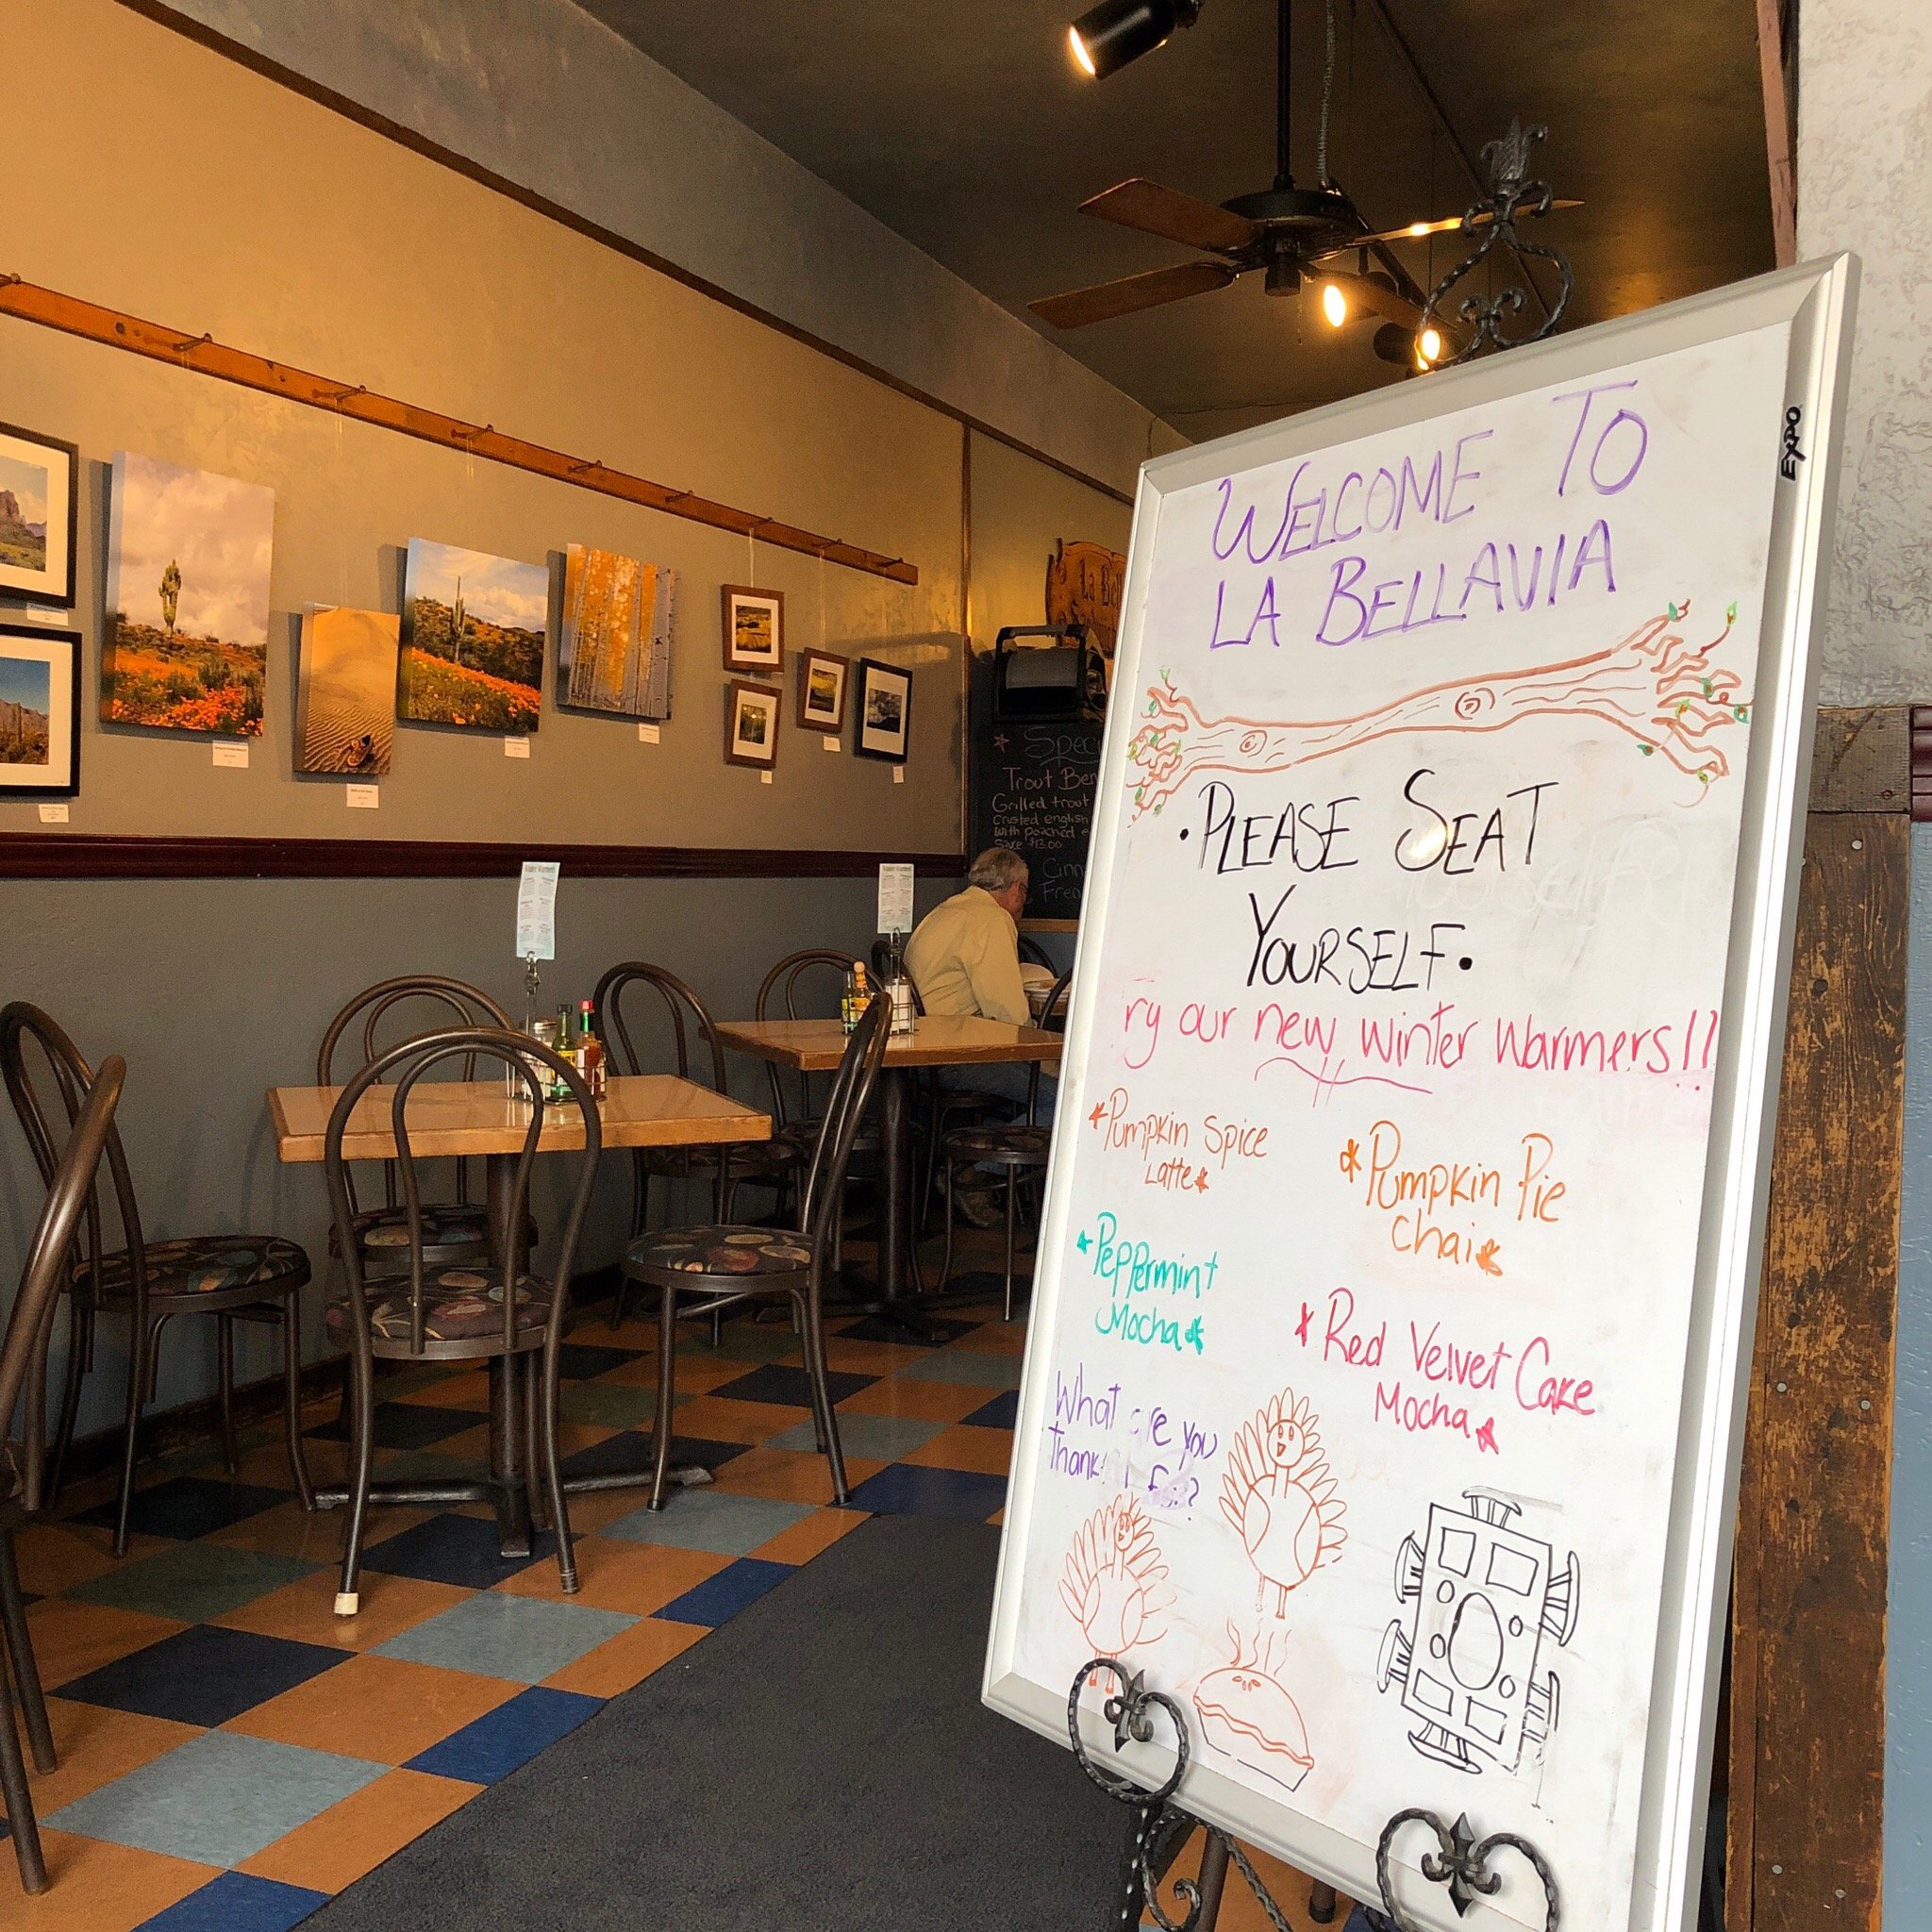 WELCOME TO
LA BELLAVIA
EXPO
•PLEASE SEAT
YOURSELF•
ry our new winter warmers!!
*Pumpkin Spice
Latte*
*Pumpkin Pie
Chai*
*Peppermint
Mocha*
*Red Velvet Cake
Mocha*
What are you
La Bel
Spec
Trout Ben
Grilled trout
Crusted english
with poached e
Sauce $13.00
Cinn
Fren
Winter Warmers